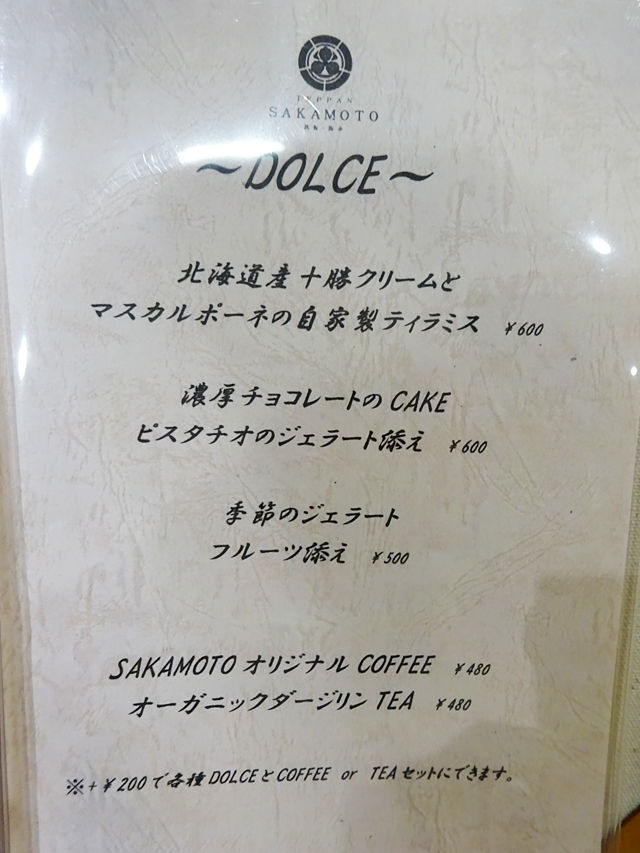 TEPPAN
SAKAMOTO
～DOLCE～
北海道産十勝クリームと
マスカルポーネの自家製ティラミス ¥600
濃厚チョコレートのCAKE
ピスタチオのジェラート添え ¥600
季節のジェラート
フルーツ添え ¥500
SAKAMOTOオリジナルCOFFEE ¥480
オーガニックダージリンTEA ¥480
※+¥200で各種DOLCEとCOFFEE or TEAセットにできます。